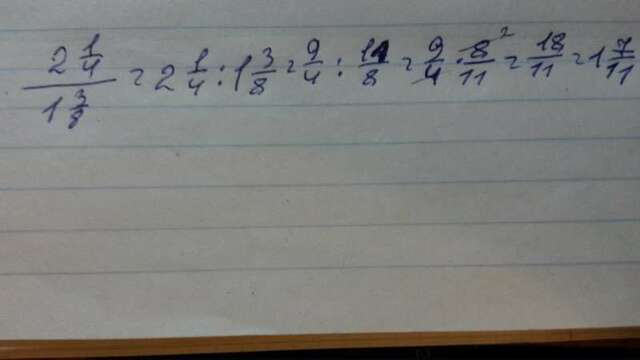 2 1/4 / 1 3/8 = 2 1/4 : 1 3/8 = 9/4 : 11/8 = 9/4 · 8/11 ² = 18/11 = 1 7/11